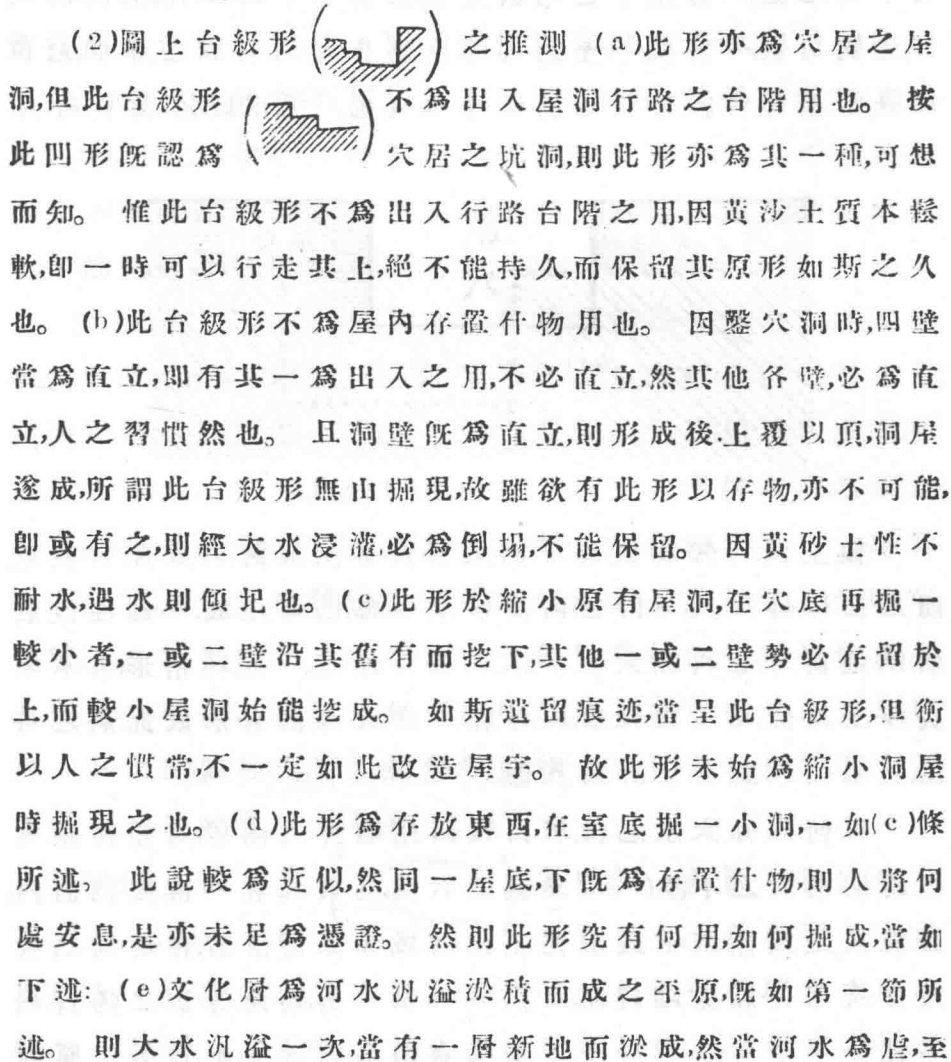 (2)圖上台級形( )之推測 (a)此形亦爲穴居之屋
洞,但此台級形( )不爲出入屋洞行路之台階用也。 按
此凹形旣認爲 穴居之坑洞,則此形亦爲其一種,可想
而知。 惟此台級形不爲出入行路台階之用,因黃沙土質本鬆
軟,卽一時可以行走其上,絕不能持久,而保留其原形如斯之久
也。 (b)此台級形不爲屋內存置什物用也。 因鑿穴洞時,四壁
當爲直立,卽有其一爲出入之用,不必直立,然其他各壁,必爲直
立,人之習慣然也。 且洞壁旣爲直立,則形成後.上覆以頂,洞屋
遂成,所謂此台級形無由掘現,故雖欲有此形以存物,亦不可能,
卽或有之,則經大水浸灌,必爲倒塌,不能保留。 因黃砂土性不
耐水,遇水則傾圯也。(c)此形於縮小原有屋洞,在穴底再掘一
較小者,一或二壁沿其舊有而挖下,其他一或二壁勢必存留於
上,而較小屋洞始能挖成。 如斯遺留痕迹,當呈此台級形,但衡
以人之慣常,不一定如此改造屋宇。 故此形未始爲縮小洞屋
時掘現之也。(d)此形爲存放東西,在室底掘一小洞,一如(c)條
所述。 此說較爲近似,然同一屋底,下旣爲存置什物,則人將何
處安息,是亦未足爲憑證。 然則此形究有何用,如何掘成,當如
下述: (e)文化層爲河水汎溢淤積而成之平原,旣如第一節所
述。 則大水汎溢一次,當有一層新地而淤成,然當河水爲虐,至